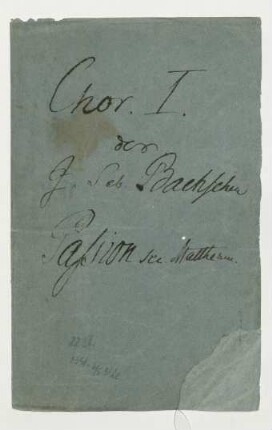 Chor. I.
der
J. Seb. Bachschen
Passion sec Matthaeum.